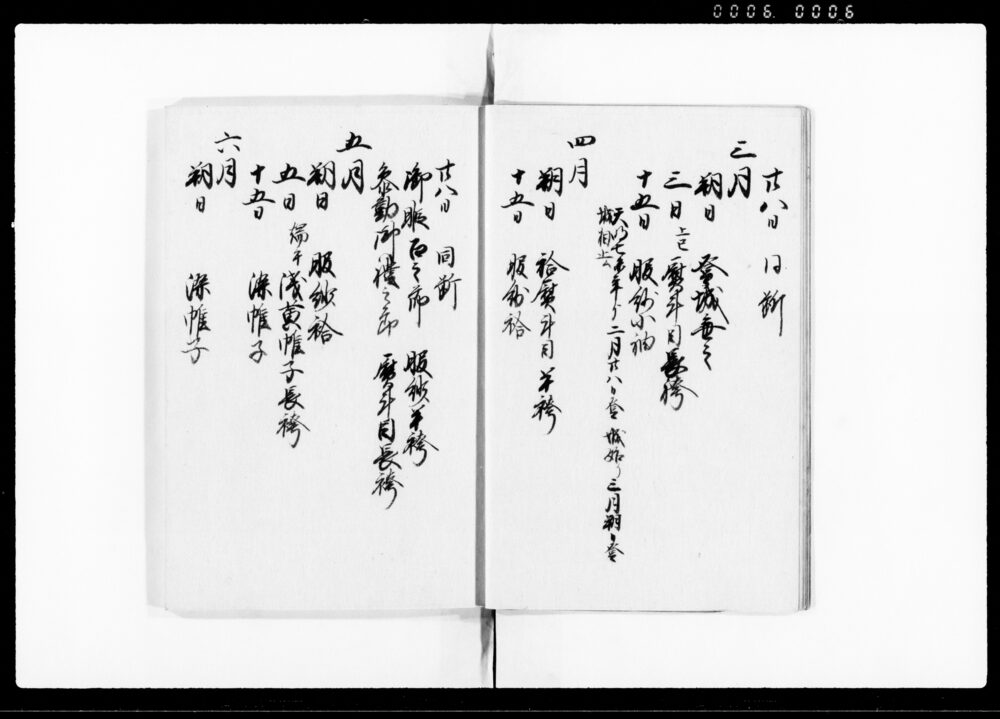 0006 0006
廿八日 同断
三月
朔日 登城無之
三日 上巳 熨斗目長袴
十五日 服紗小袖
天明七未年ゟ二月廿八日登城始り三月朔日登
城相止ム
四月
朔日 袷熨斗目半袴
十五日 服紗袷
廿八日 同断
御暇之節 服紗半袴
参勤御禮之節 熨斗目長袴
五月
朔日 服紗袷
五日 端午 浅黄帷子長袴
十五日 染帷子
六月
朔日 染帷子